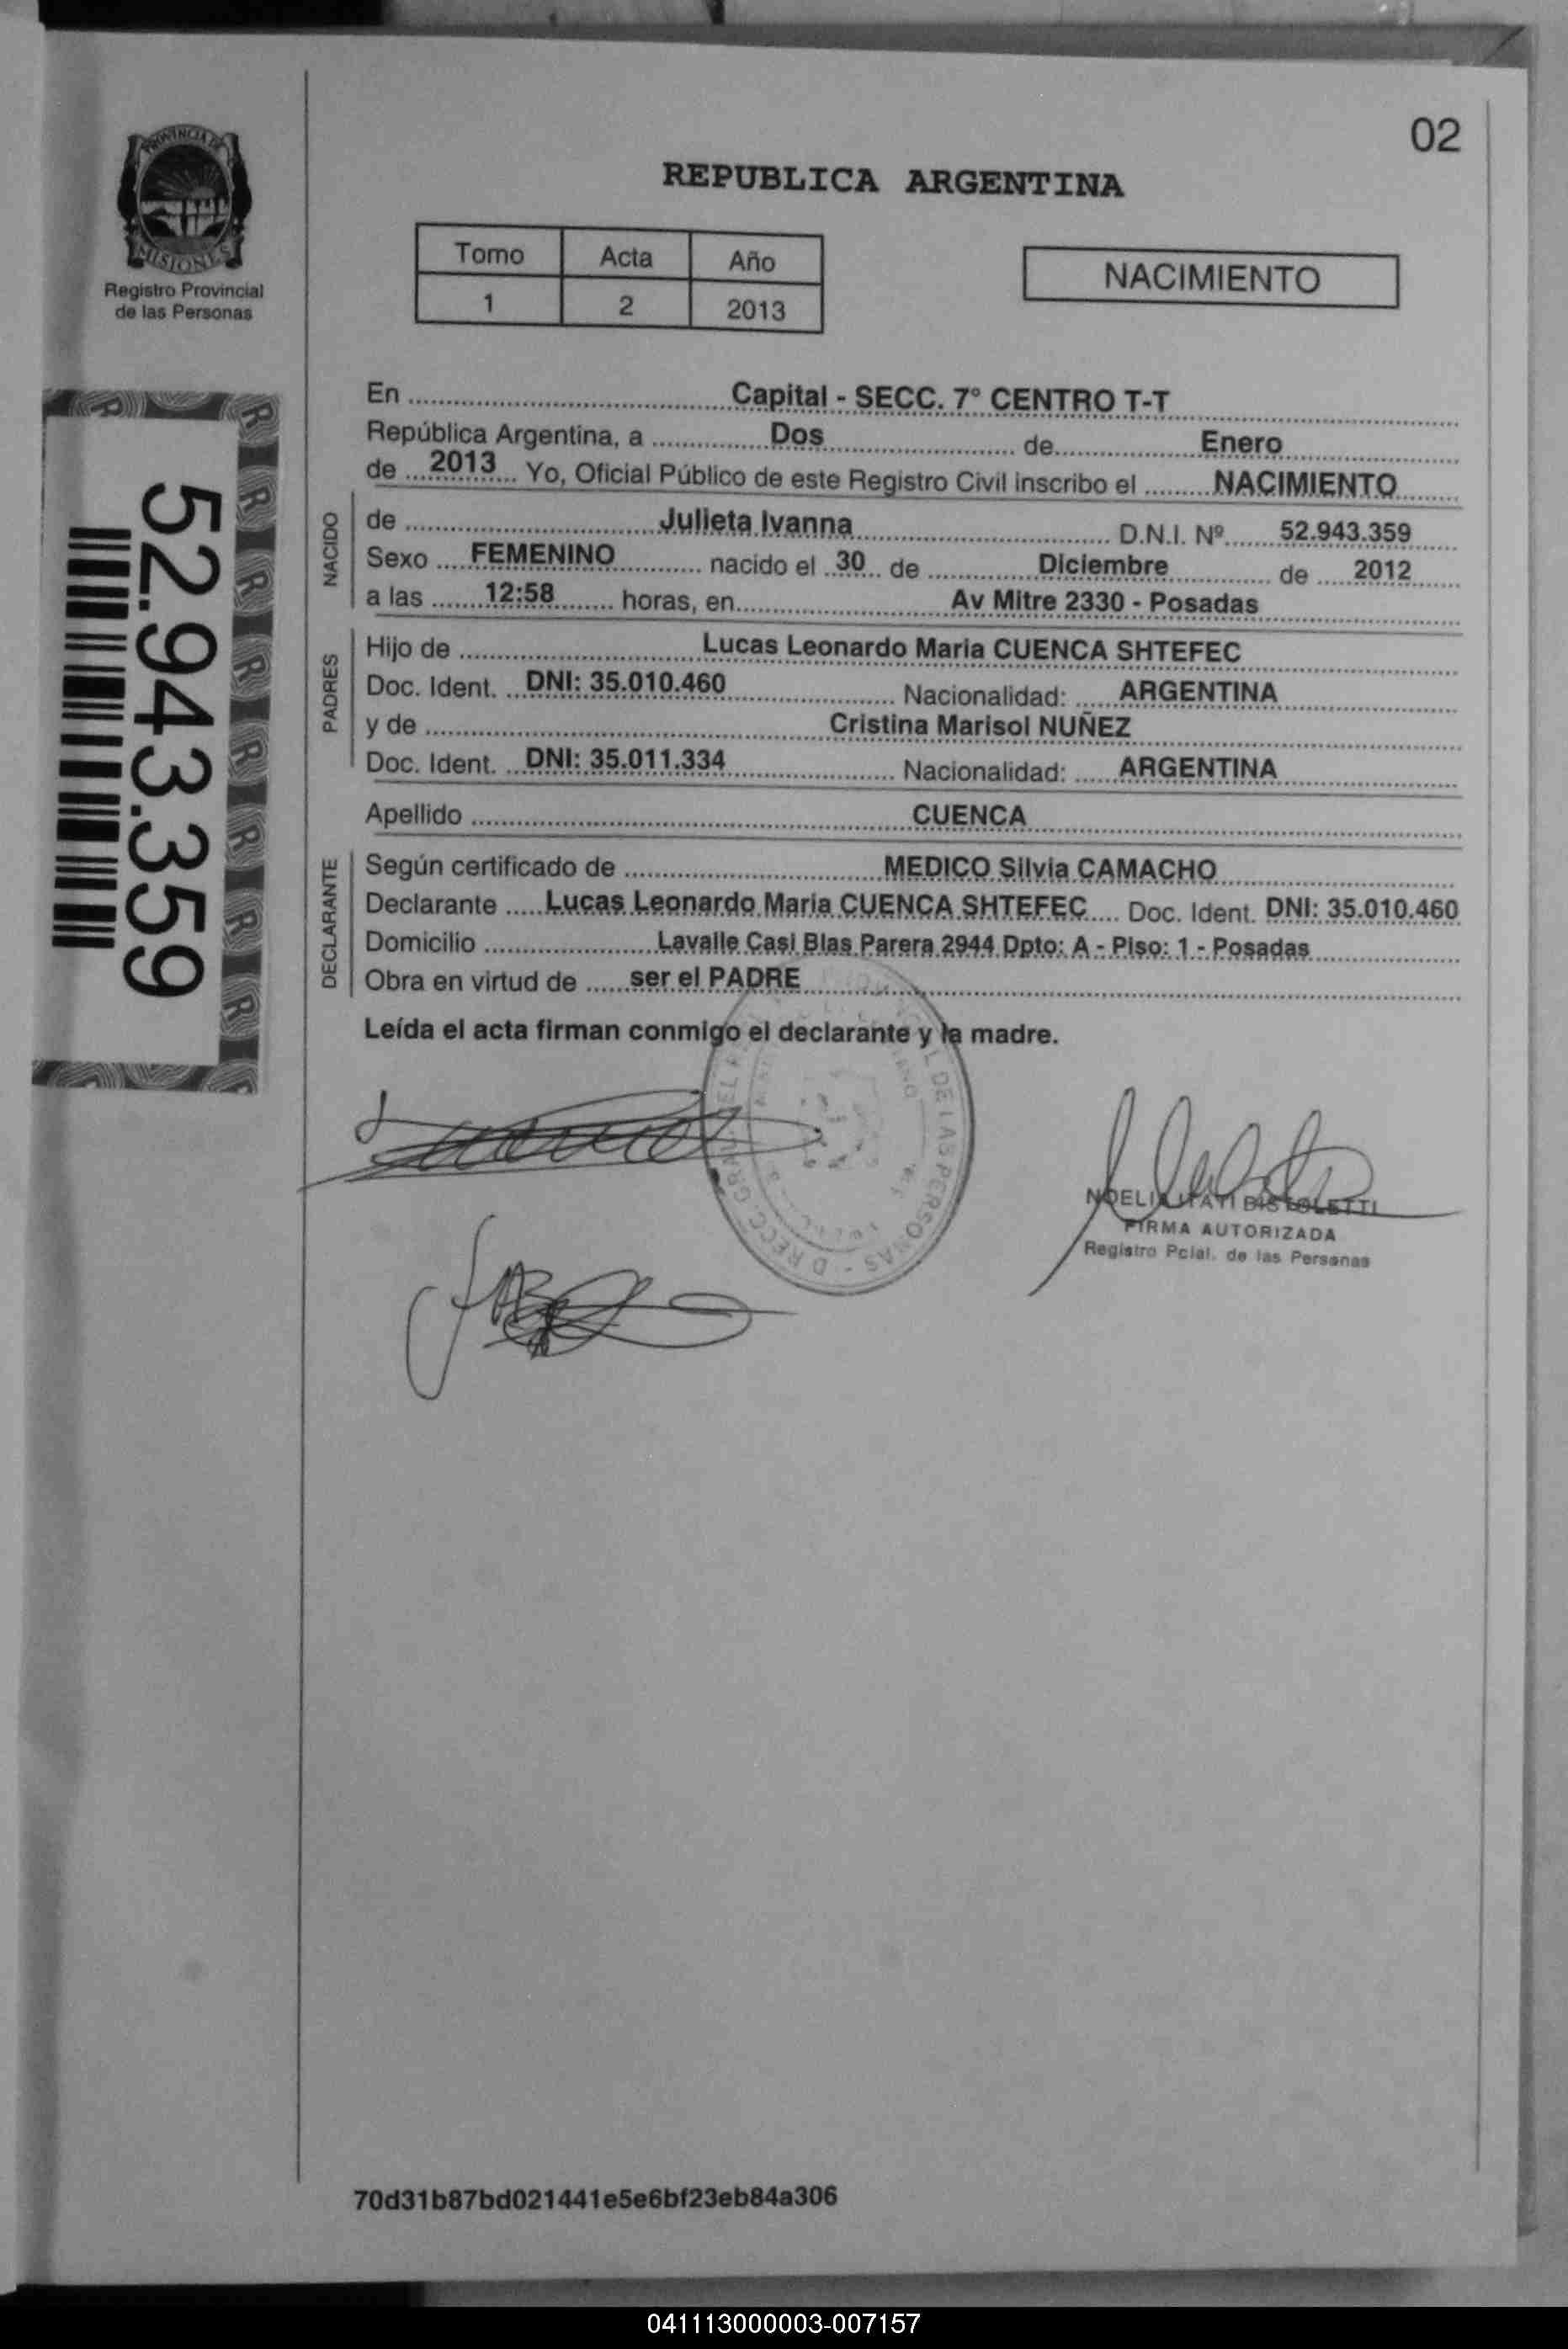 02
PROVINCIA DE
MISIONES
Registro Provincial
de las Personas
REPUBLICA ARGENTINA
Tomo Acta Año
1 2 2013
NACIMIENTO
52.943.359
En Capital - SECC. 7° CENTRO T-T
República Argentina, a Dos de Enero
de 2013 Yo, Oficial Público de este Registro Civil inscribo el NACIMIENTO
NACIDO
de Julieta Ivanna D.N.I. Nº 52.943.359
Sexo FEMENINO nacido el 30 de Diciembre de 2012
a las 12:58 horas, en Av Mitre 2330 - Posadas
PADRES
Hijo de Lucas Leonardo Maria CUENCA SHTEFEC
Doc. Ident. DNI: 35.010.460 Nacionalidad: ARGENTINA
y de Cristina Marisol NUÑEZ
Doc. Ident. DNI: 35.011.334 Nacionalidad: ARGENTINA
Apellido CUENCA
DECLARANTE
Según certificado de MEDICO Silvia CAMACHO
Declarante Lucas Leonardo Maria CUENCA SHTEFEC Doc. Ident. DNI: 35.010.460
Domicilio Lavalle Casi Blas Parera 2944 Dpto: A - Piso: 1 - Posadas
Obra en virtud de ser el PADRE
Leída el acta firman conmigo el declarante y la madre.
DE LAS PERSONAS
NOELIA ITATI BISTOLETTI
FIRMA AUTORIZADA
Registro Pcial. de las Personas
70d31b87bd021441e5e6bf23eb84a306
041113000003-007157